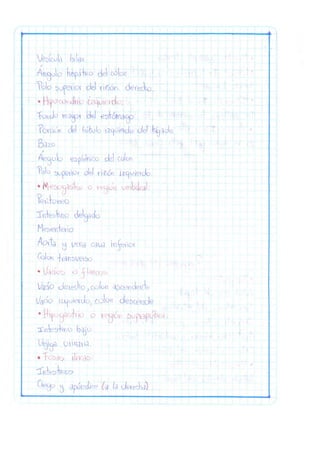 Vesícula biliar
Ángulo hepático del colon
Polo superior del riñón derecho.
• Hipocondrio izquierdo:
Fondo mayor del estómago
Porción del lóbulo izquierdo del hígado
Bazo
Ángulo esplénico del colon
Polo superior del riñón izquierdo
• Mesogastrio o región umbilical:
Peritoneo
Intestino delgado
Mesenterio
Aorta y vena cava inferior
Colon transverso
• Vacíos o flancos:
Vacío derecho, colon ascendente
Vacío izquierdo, colon descendente
• Hipogastrio o región suprapúbica:
Intestino bajo
Vejiga urinaria
• Fosas ilíacas
Intestinos
Ciego y apéndice (a la derecha)